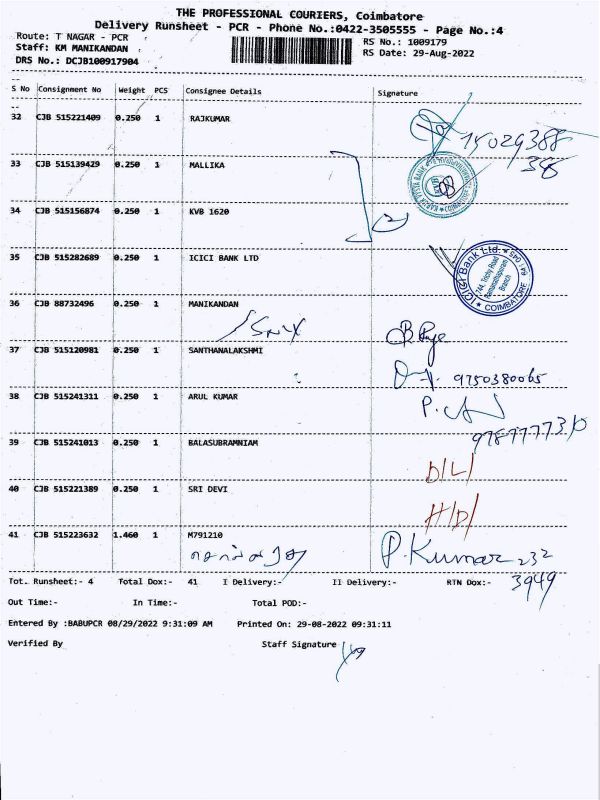 THE PROFESSIONAL COURIERS, Coimbatore
Delivery Runsheet - PCR - Phone No.:0422-3505555 - Page No.:4
Route: T NAGAR - PCR
RS No.: 1009179
Staff: KM MANIKANDAN
RS Date: 29-Aug-2022
DRS No.: DCJB100917904
S No Consignment No Weight PCS Consignee Details Signature
32 CJB 515221409 0.250 1 RAJKUMAR
33 CJB 515139429 0.250 1 MALLIKA
34 CJB 515156874 0.250 1 KVB 1620
35 CJB 515282689 0.250 1 ICICI BANK LTD
ICICI Bank Ltd.
744, Trichy Road
Ramanathapuram
Branch
COIMBATORE
36 CJB 88732496 0.250 1 MANIKANDAN
37 CJB 515120981 0.250 1 SANTHANALAKSHMI
9750380065
38 CJB 515241311 0.250 1 ARUL KUMAR
39 CJB 515241013 0.250 1 BALASUBRAMNIAM
D/L/
40 CJB 515221389 0.250 1 SRI DEVI
H/D/
41 CJB 515223632 1.460 1 M791210
P.Kumar 232
3949
Tot. Runsheet:- 4 Total Dox:- 41 I Delivery:- II Delivery:- RTN Dox:-
Out Time:- In Time:- Total POD:-
Entered By :BABUPCR 08/29/2022 9:31:09 AM Printed On: 29-08-2022 09:31:11
Verified By Staff Signature